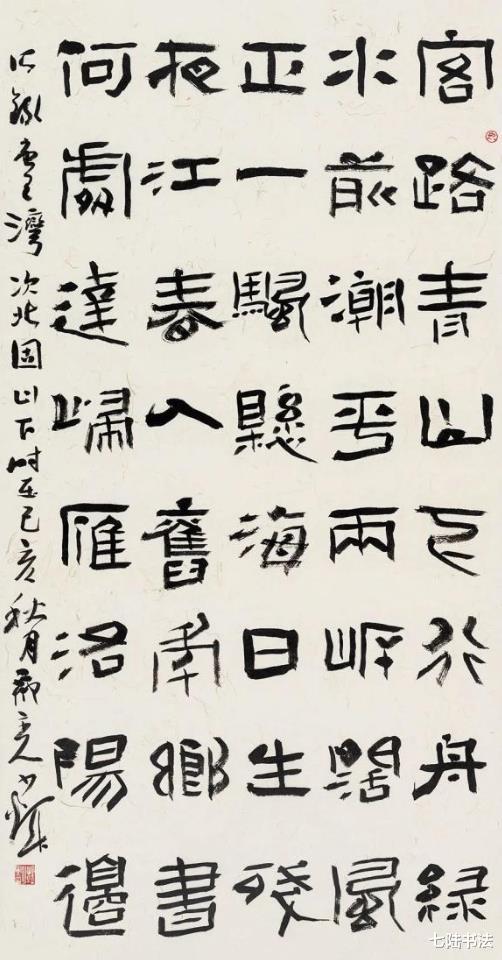 客路青山下行舟綠
水前潮平兩岸闊風
正一颿懸海日生殘
夜江春入舊年鄉書
何處達歸雁洛陽邊
錄唐王灣次北固山下時在己亥秋月
七陆书法